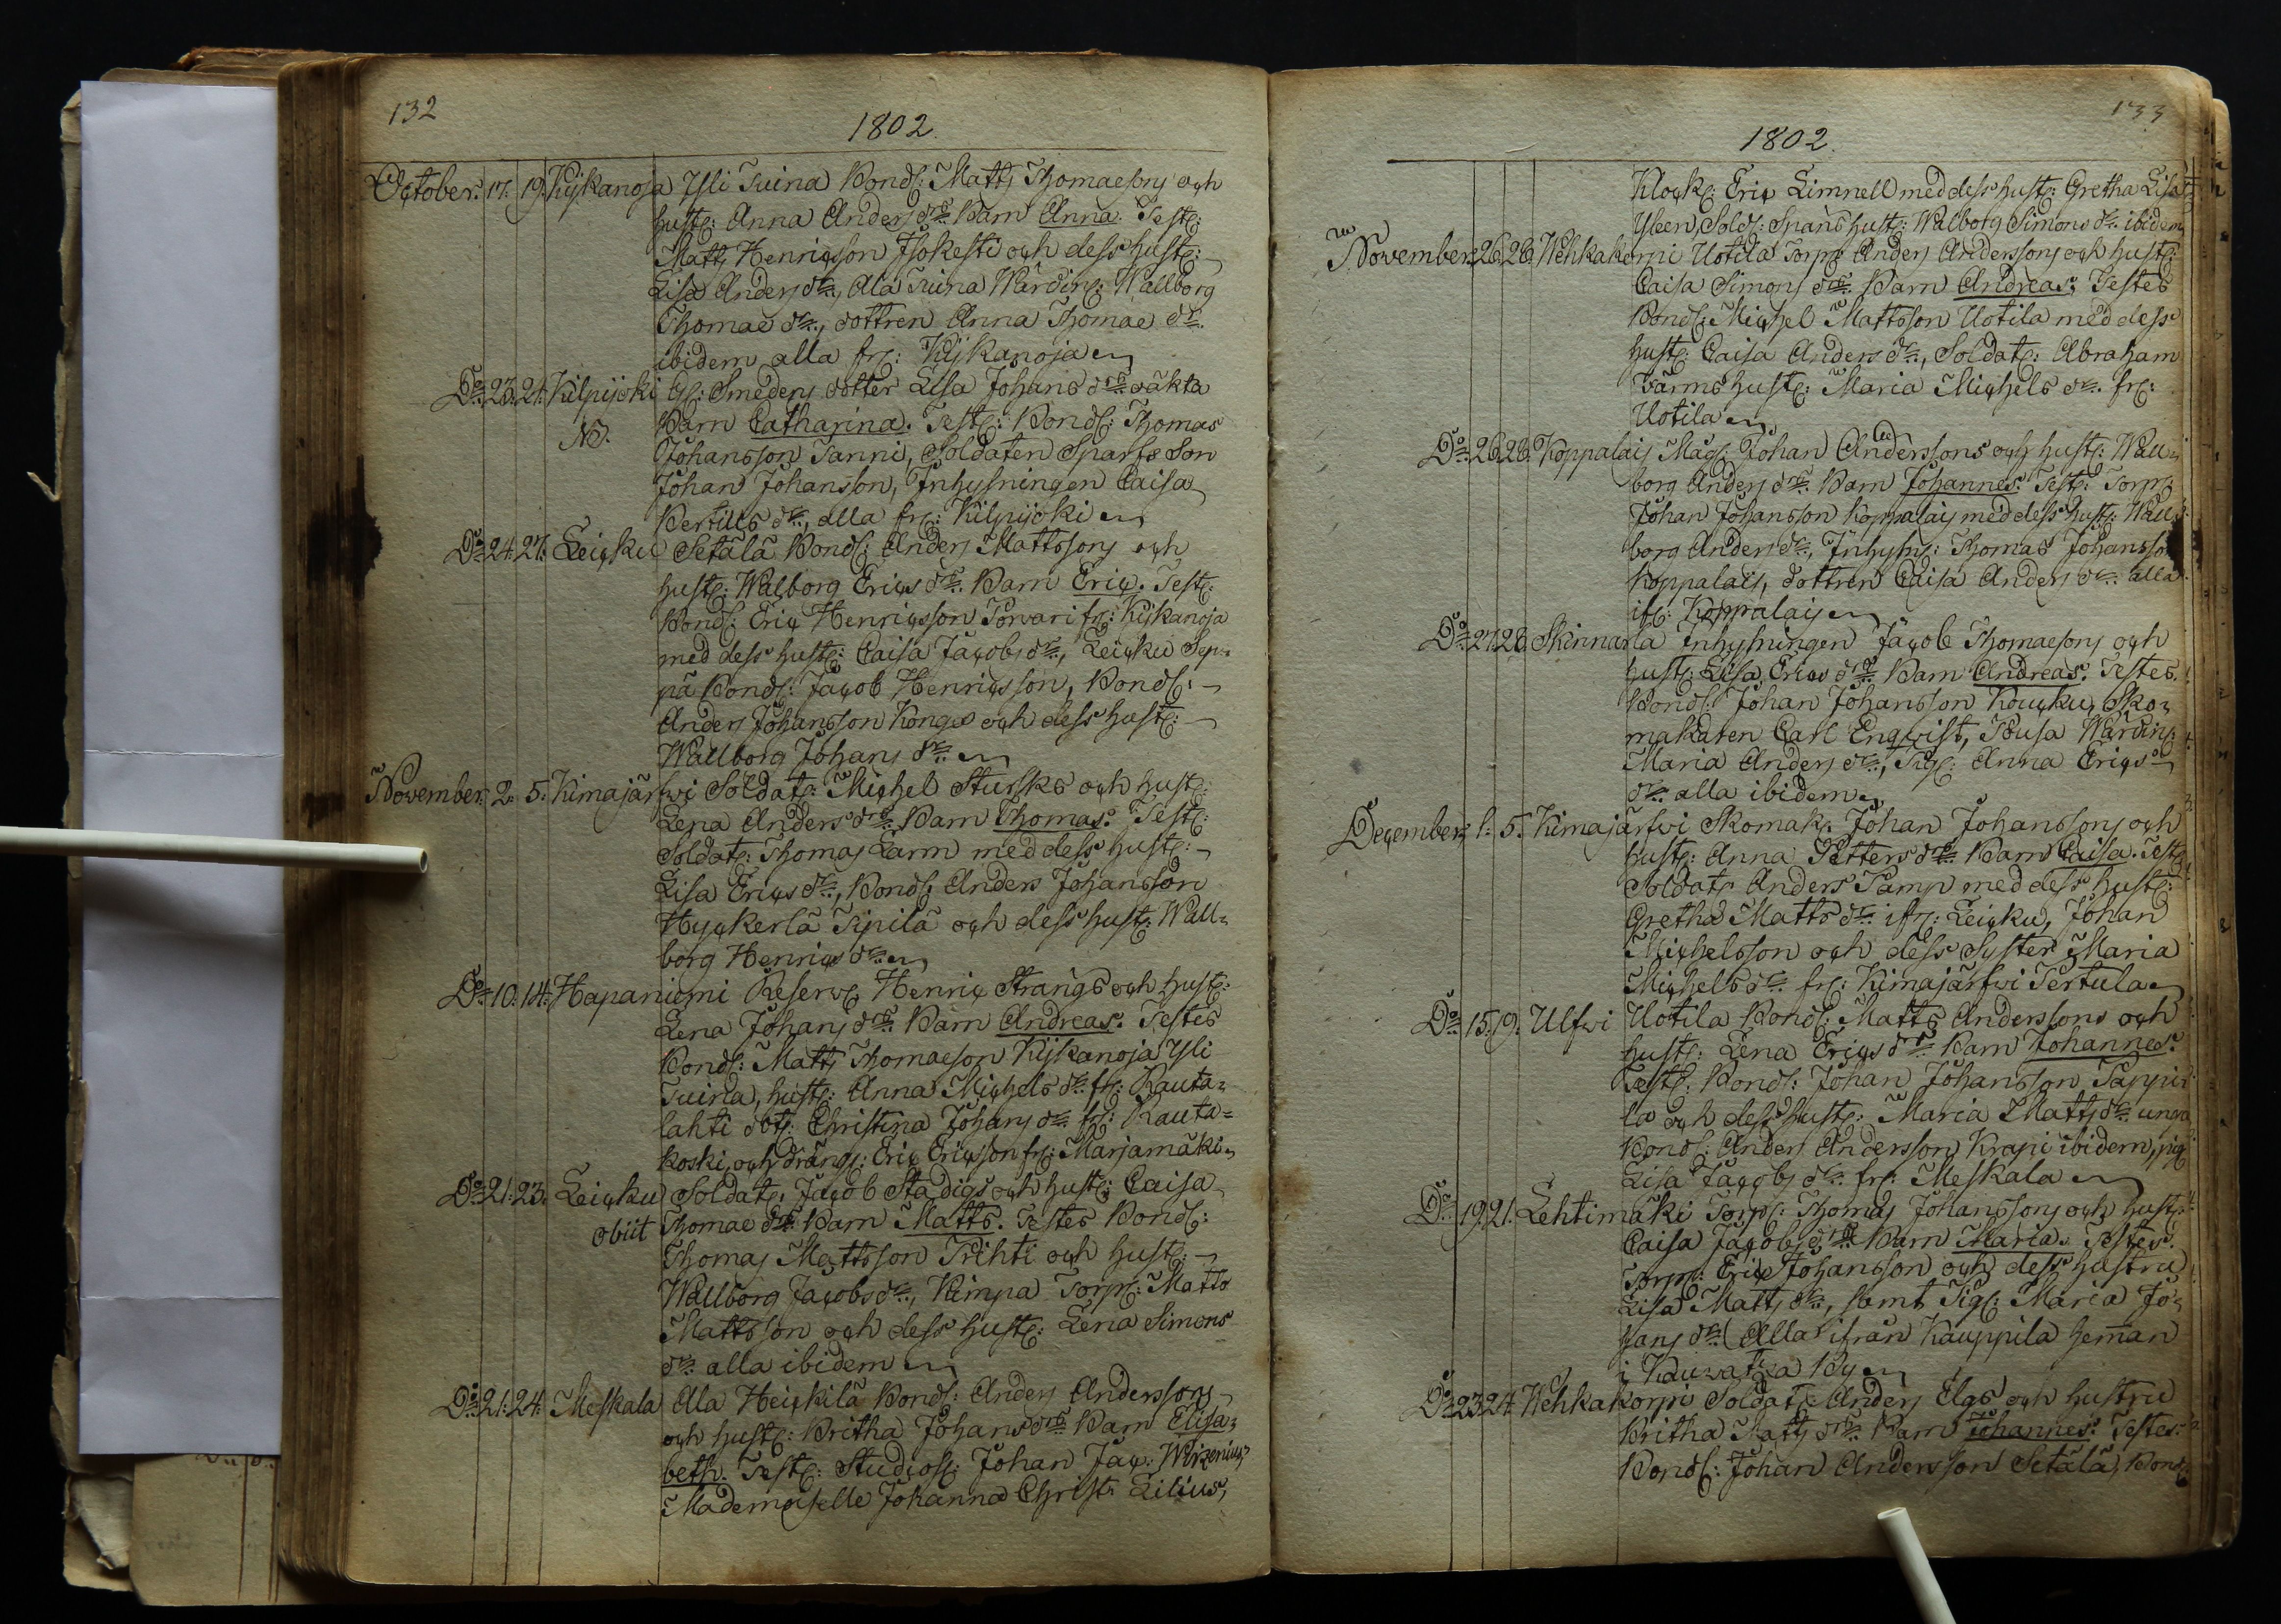 132
1802.
October. 17. 19. Kijkanoja Yli Tuina Bond: Matts Thomaesons och
hust: Anna Anders dr. Barn Anna. Test:
Matts Henricsson Isokesti och dess hust:
Lisa Anders dr., Ala Tuina Wärdin: Wallborg
Thomae dr., dottren Anna Thomae dr.
ibidem alla fr: Kijkanoja
Do. 23. 24. Kilpijoki Gl: Smedens dotter Lisa Johans drs oäkta
NB. Barn Catharina. Test: Bond: Thomas
Johansson Tanni, Soldaten Sparfs Son
Johan Johansson, Inhysningen Caisa
Bertills dr., alla fr: Kilpijoki
Do. 24. 27. Leicku Setälä Bond: Anders Mattssons och
hust: Walborg Erics drs. Barn Eric. Test:
Bond: Eric Henricsson Torvari fr: Kijkanoja
med dess hust: Caisa Jacobs dr., Leicku Sep-
pä Bond: Jacob Henricsson, Bond:
Anders Johansson Konga och dess hust:
Wallborg Johans dr.
November. 2. 5. Kimajärfwi Soldat: Michel Sturcks och hust:
Lena Anders drs. Barn Thomas. Test:
Soldat: Thomas Larm med dess hust:
Lisa Erics dr., Bond: Anders Johansson
Hyckerlä Sipilä och dess hust: Wall-
borg Henrics dr.
Do. 10. 14. Hapaniemi Reserv: Henric Strångs och hust:
Lena Johans drs. Barn Andreas. Testes
Bond: Matts Thomaeson Kijkanoja Yli
Tuina, hust: Anna Michels dr. fr: Rauta-
lahti dot: Christina Johans dr. fr: Rauta-
koski, och dräng: Eric Ericsson fr: Marjamäki
Do. 21. 23. Leicku Soldat: Jacob Stadigs och hust: Caisa
obiit Thomae drs. Barn Matts. Testes Bond:
Thomas Mattsson Prihti och hust:
Wallborg Jacobs dr., Kimpa Torp: Matts
Mattsson och dess hust: Lena Simons
dr. alla ibidem
Do. 21. 24. Meskala Ala Heickilä Bond: Anders Anderssons
och hust: Britha Johans drs. Barn Elisa-
beth. Test: Studios: Johan Jac: Wirzenius,
Mademoiselle Johanna Christ: Lilius,
133
1802.
Klock: Eric Limnell med dess hust: Gretha Lisa
Yleen, Sold: Spans hust: Walborg Simons dr. ibidem
November. 26. 28. Wehkakorpi Uotila Torp: Anders Anderssons och hust:
Caisa Simons drs. Barn Andreas. Testes
Bond: Michel Mattsson Uotila med dess
hust: Caisa Anders dr., Soldat: Abraham
Värms hust: Maria Michels dr. fr:
Uotila
Do. 26. 28. Koppalais Måg: Johan Anderssons och hust: Wall-
borg Anders drs. Barn Johannes. Test: Torp:
Johan Johansson Koppalais med dess hust: Wall-
borg Anders dr., Inhysn: Thomas Johansson
Koppalais, dottren Caisa Anders dr. alla
ifr: Koppalais
Do. 27. 28. Skinnarla Inhysningen Jacob Thomaesons och
hust: Lisa Erics drs. Barn Andreas. Testes.
Bond: Johan Johansson Koucku, Sko-
makaren Carl Enqvist, Pousa Wärdin:
Maria Anders dr., Pig: Anna Erics
dr. alla ibidem
December. 1. 5. Kimajärfwi Skomak: Johan Johanssons och
hust: Anna Petters drs. Barn Caisa. Test:
Soldat: Anders Pamp med dess hust:
Gretha Matts dr. ifr: Leicku, Johan
Michelsson och dess Syster Maria
Michels dr. fr: Kimajärfwi Pertula
Do. 15. 19. Ulfwi Uotila Bond: Matts Anderssons och
hust: Lena Erics drs. Barn Johannes.
Test: Bond: Johan Johansson Pappi-
la och dess hust: Maria Matts dr. unga
Bond: Anders Andersson Krapi ibidem, pig:
Lisa Jacobs dr. fr: Meskala
Do. 19. 21. Lehtimäki Torp: Thomas Johanssons och hust:
Caisa Jacobs drs. Barn Maria. Testes.
Torp: Eric Johansson och dess hustru
Lisa Matts dr., samt Pig: Maria Jo-
hans dr. Alla ifrån Kauppila heman
i Kauwatsa By
Do. 23. 24. Wehkakorpi Soldat: Anders Elgs och hustru
Britha Matts drs. Barn Johannes. Testes:
Bond: Johan Andersson Setälä, Bond: